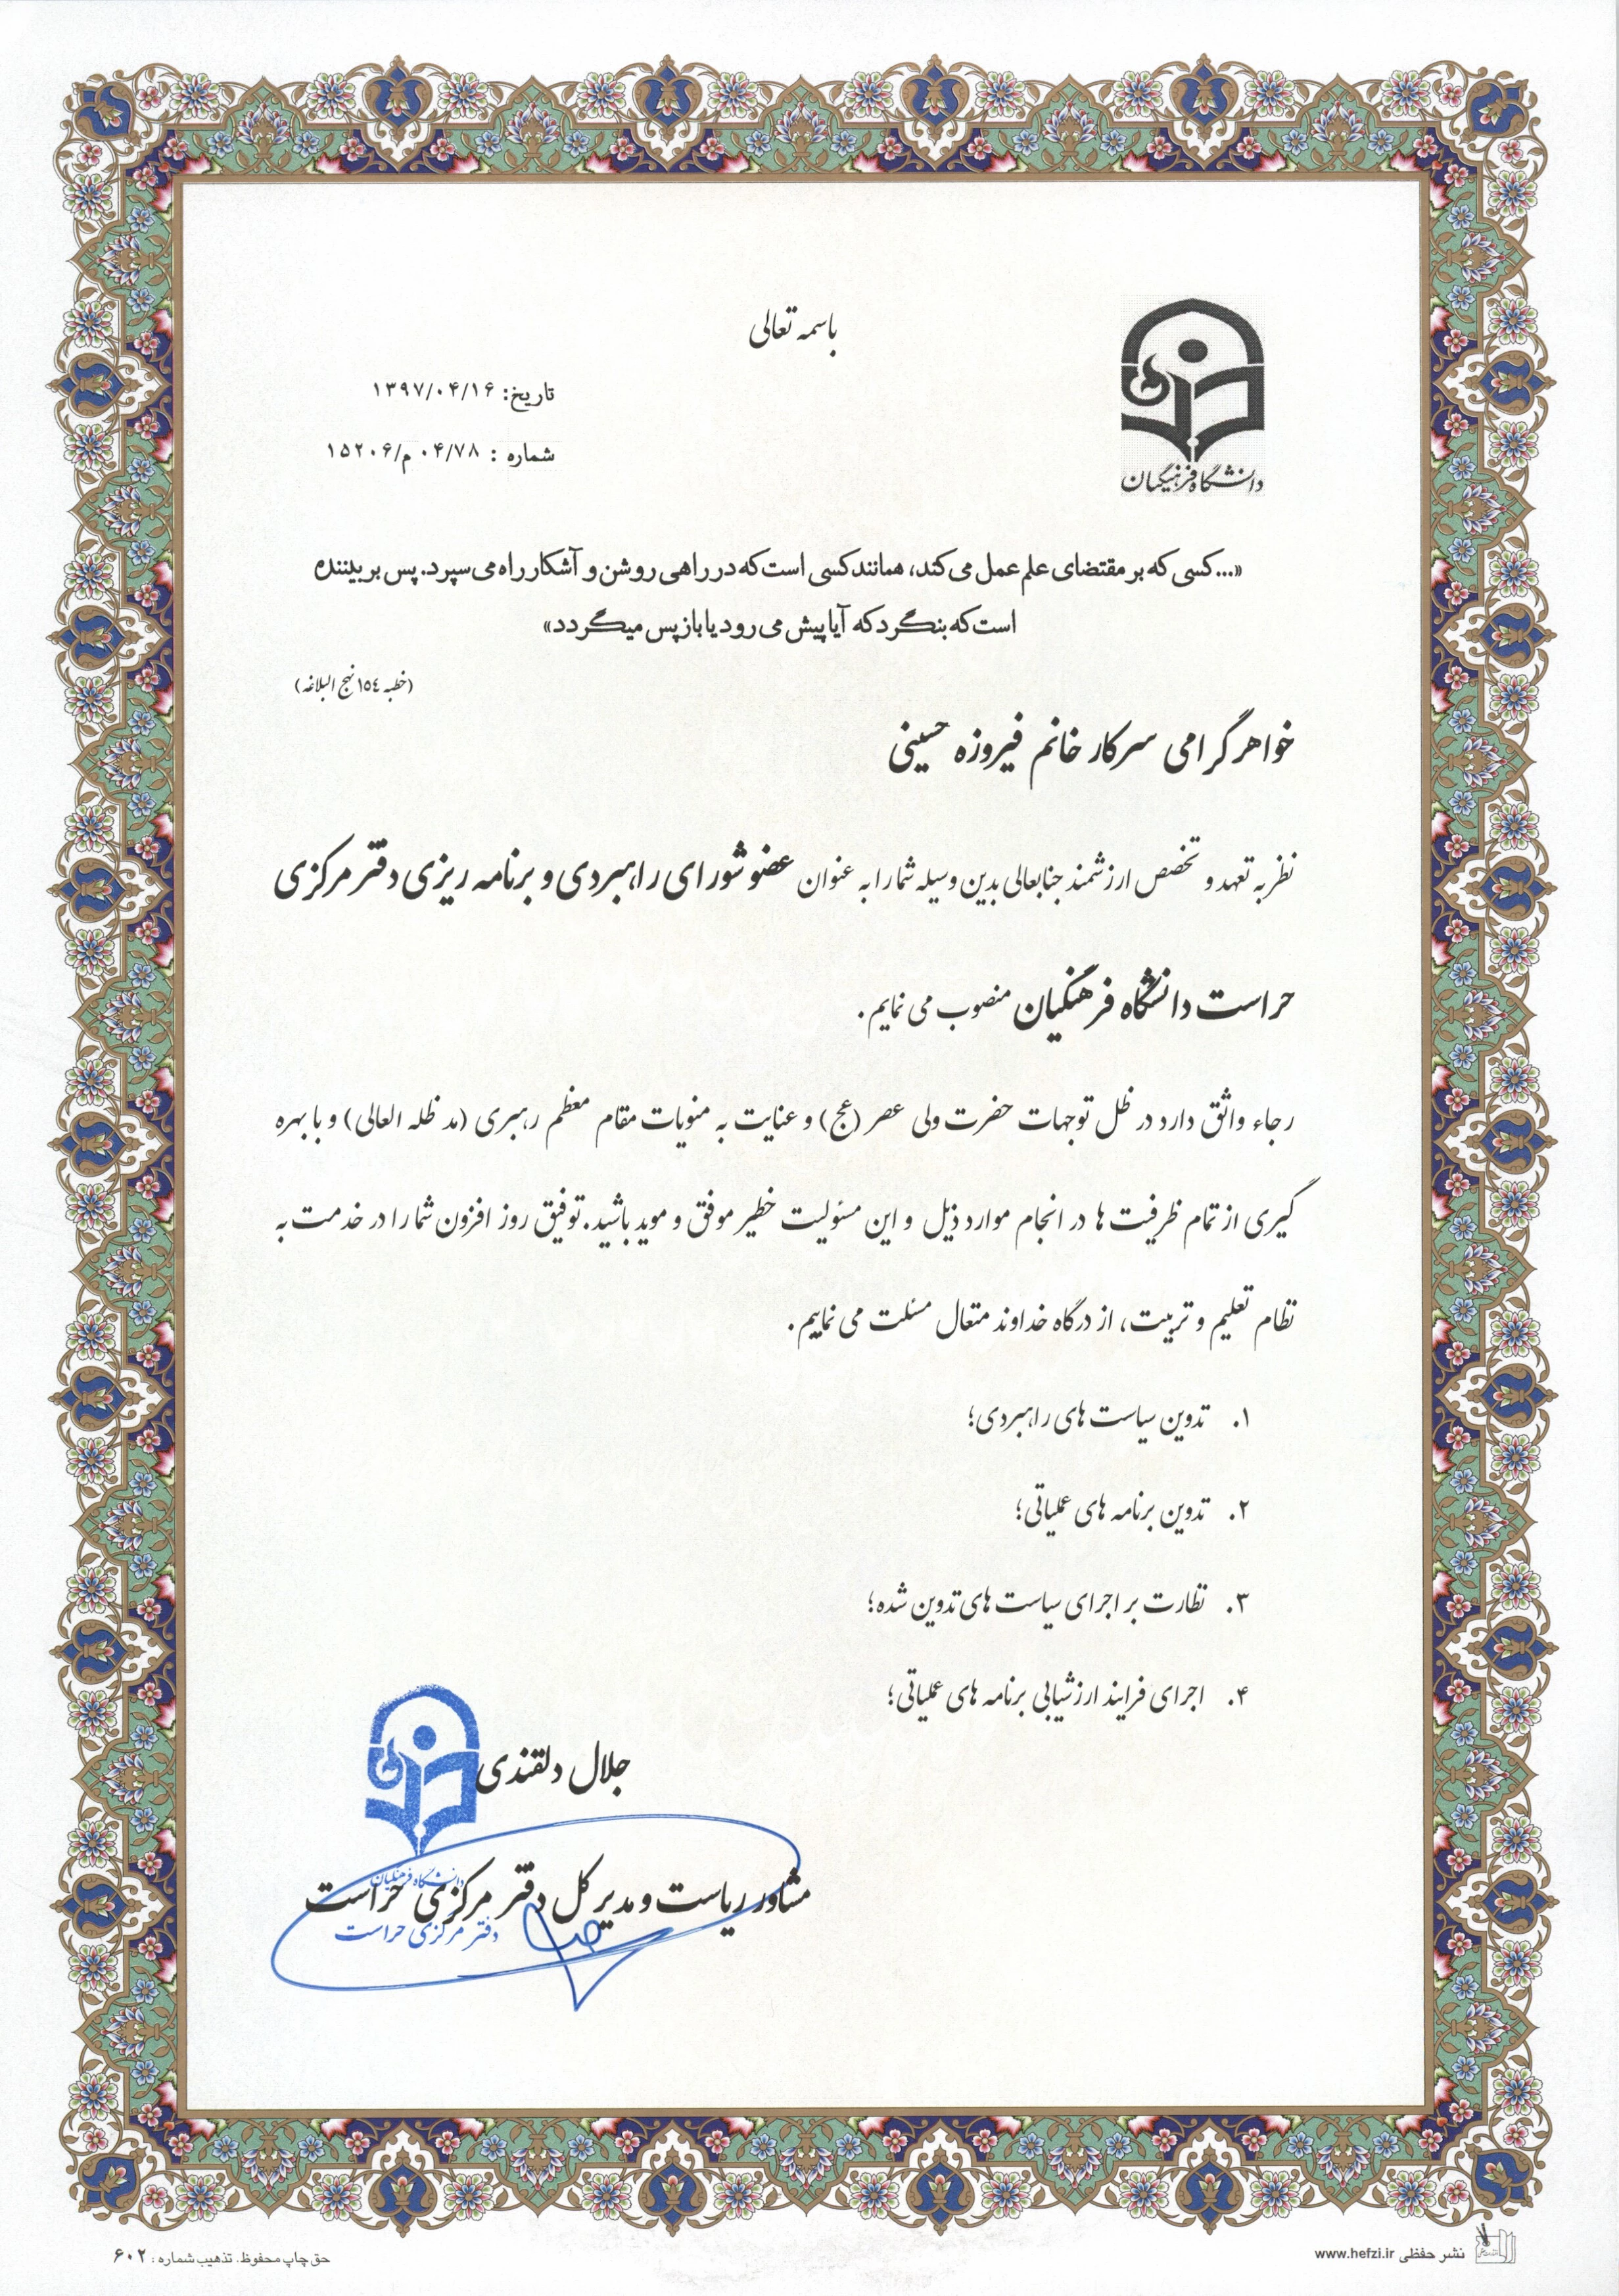 باسمه تعالی
تاریخ: ۱۳۹۷/۰۴/۱۶
شماره : ۰۴/۷۸م/۱۵۲۰۶
دانشگاه فرهنگیان
«...کسی که بر مقتضای علم عمل می کند، همانند کسی است که در راهی روشن و آشکار راه می سپرد. پس بر بیننده
است که بنگرد که آیا پیش می رود یا باز پس میگردد»
(خطبه ١٥٤ نهج البلاغه)
خواهر گرامی سرکار خانم فیروزه حسینی
نظر به تعهد و تخصص ارزشمند جنابعالی بدین وسیله شما را به عنوان عضو شورای راهبردی و برنامه ریزی دفتر مرکزی
حراست دانشگاه فرهنگیان منصوب می نمایم.
رجاء واثق دارد در ظل توجهات حضرت ولی عصر (عج) و عنایت به منویات مقام معظم رهبری (مد ظله العالی) و با بهره
گیری از تمام ظرفیت ها در انجام موارد ذیل و این مسئولیت خطیر موفق و موید باشید. توفیق روز افزون شما را در خدمت به
نظام تعلیم و تربیت، از درگاه خداوند متعال مسئلت می نماییم.
۱. تدوین سیاست های راهبردی؛
۲. تدوین برنامه های عملیاتی؛
۳. نظارت بر اجرای سیاست های تدوین شده؛
۴. اجرای فرایند ارزشیابی برنامه های عملیاتی؛
جلال دلقندی
مشاور ریاست و مدیر کل دفتر مرکزی حراست
دانشگاه فرهنگیان
دفتر مرکزی حراست
نشر حفظی www.hefzi.ir
حق چاپ محفوظ. تذهیب شماره : ۶۰۲